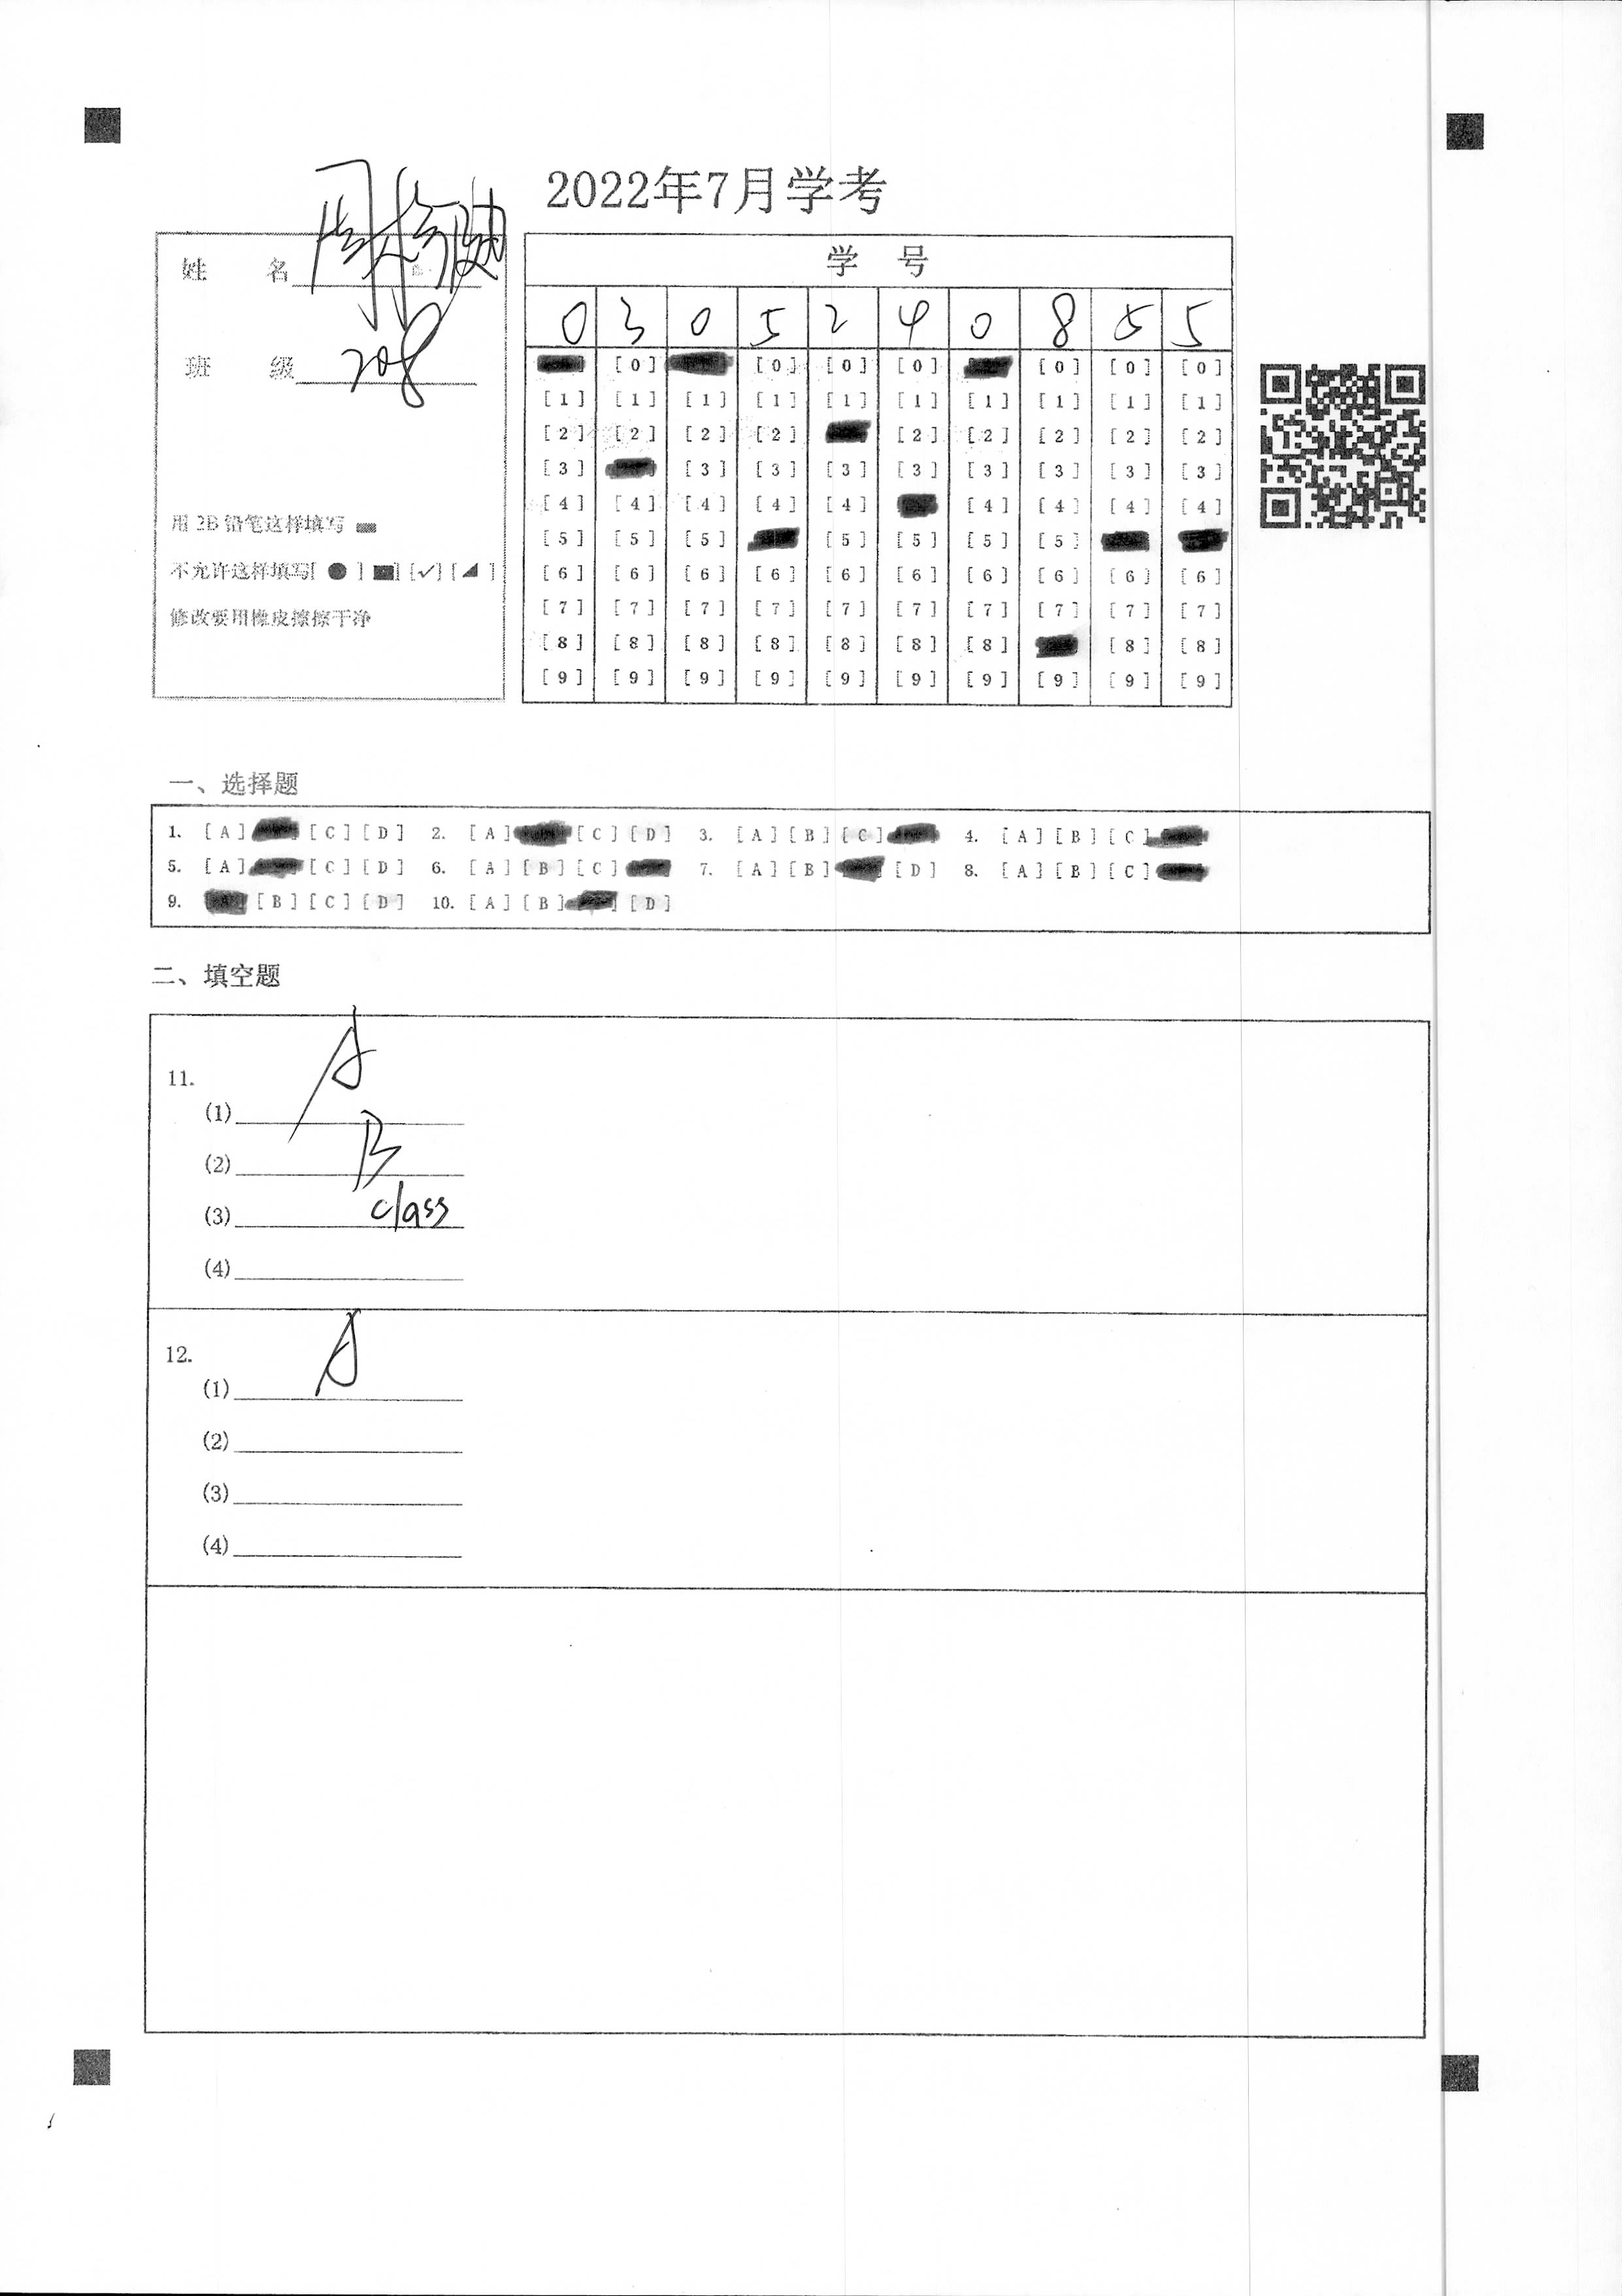 2022年7月学考
姓 名 周
班 级 208
用 2B 铅笔这样填写
不允许这样填写[ ● ] [■] [✓] [◢ ]
修改要用橡皮擦擦干净
学 号
0 3 0 5 2 4 0 8 5 5
[0] [0] [0] [0] [0] [0] [0]
[1] [1] [1] [1] [1] [1] [1] [1] [1] [1]
[2] [2] [2] [2] [2] [2] [2] [2] [2]
[3] [3] [3] [3] [3] [3] [3] [3] [3]
[4] [4] [4] [4] [4] [4] [4] [4] [4]
[5] [5] [5] [5] [5] [5] [5]
[6] [6] [6] [6] [6] [6] [6] [6] [6] [6]
[7] [7] [7] [7] [7] [7] [7] [7] [7] [7]
[8] [8] [8] [8] [8] [8] [8] [8] [8]
[9] [9] [9] [9] [9] [9] [9] [9] [9] [9]
一、选择题
1. [A] [C] [D] 2. [A] [C] [D] 3. [A] [B] [C] 4. [A] [B] [C]
5. [A] [C] [D] 6. [A] [B] [C] 7. [A] [B] [D] 8. [A] [B] [C]
9. [B] [C] [D] 10. [A] [B] [D]
二、填空题
11.
(1) A
(2) B
(3) class
(4)
12.
(1) A
(2)
(3)
(4)